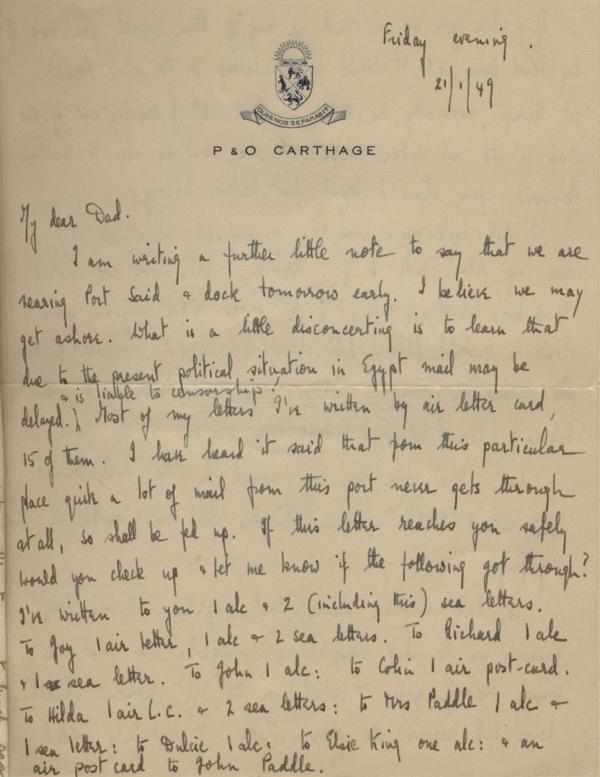 Friday evening.
21/1/49
QUIS NOS SEPARABIT
P & O CARTHAGE
My dear Dad.
I am writing a further little note to say that we are
nearing Port Said & dock tomorrow early. I believe we may
get ashore. What is a little disconcerting is to learn that
due to the present political situation in Egypt mail may be
& is liable to censorship.
delayed. Most of my letters I've written by air letter card,
15 of them. I have heard it said that from this particular
place quite a lot of mail from this port never gets through
at all, so shall be fed up. If this letter reaches you safely
would you check up & let me know if the following got through?
I've written to you 1 alc & 2 (including this) sea letters.
To Joy 1 air letter, 1 alc & 2 sea letters. To Richard 1 alc
& 1 sea letter. To John 1 alc: to Colin 1 air post-card.
To Hilda 1 air L.C. & 2 sea letters: to Mrs Paddle 1 alc &
1 sea letter: to Dulcie 1 alc: to Elsie King one alc: & an
air post card to John Paddle.